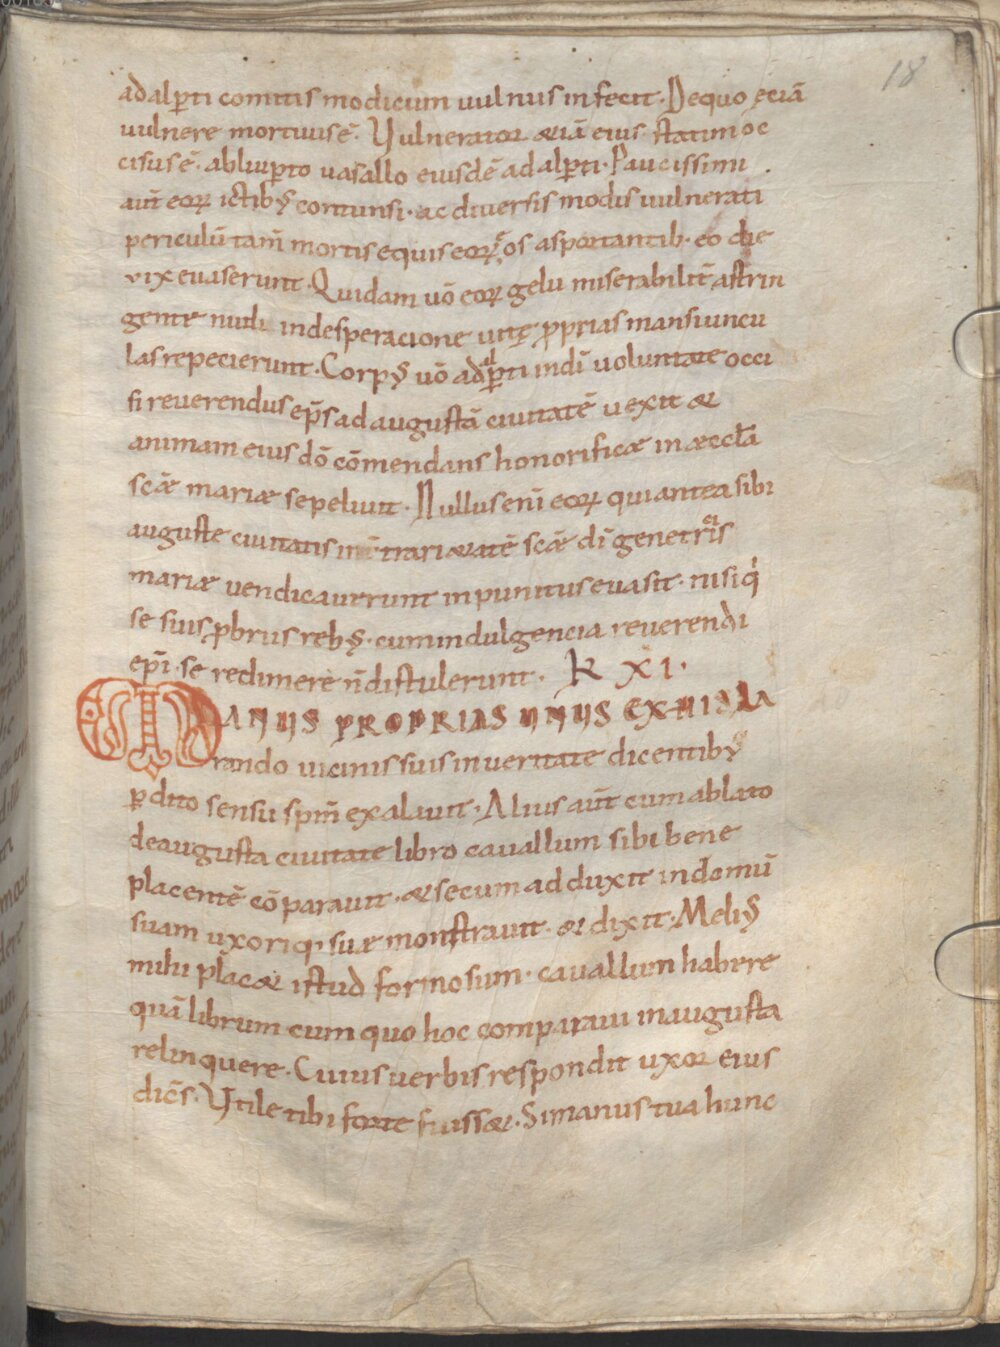 18
adalꝑti comitis modicum uulnus infecit. De quo ęciā
uulnere mortuus ē. Uulnerator &iā eius statim oc
cisus ē. abliuꝑto uasallo eiusdē adalꝑti. Paucissimi
aut̄ eoꝝ ictibꝰ contunsi. ac diuersis modis uulnerati
periculū tam̄ mortis equis eoꝝ eos asportantib. eo die
vix euaserunt. Quidam uō eoꝝ gelu miserabilit̄ astrin
gente nudi in desperacione uitę ꝓprias mansiuncu
las repecierunt. Corpꝰ uō adalꝑti in dī uoluntate occi
si reuerendus ep̄s ad augustā ciuitatē uexit &
animam eius dō cōmendans honorificae in aeccl̄a
scāe mariae sepeliuit. Nullus enī eoꝝ qui antea sibi
auguste ciuitatis intrari&atē scāe dī genetricis
mariae uendicauerunt inpunitus euasit. nisi qī
se suis ꝓbriis rebꝰ. cum indulgencia reuerendi
epī. se redimere n̄ distulerunt. K XI.
MANUS PROPRIAS UNUS EXHILA
rando uicinis suis in ueritate dicentibꝰ
ꝑdito sensu spm̄ exalauit. Alius aut̄ cum ablato
de augusta ciuitate libro cauallum sibi bene
placentē cōparauit. & secum adduxit in domū
suam uxoriqꝫ suae monstrauit. & dixit. Meliꝰ
mihi plac& istud formosum. cauallum habere
quā librum cum quo hoc comparaui in augusta
relinquere. Cuius uerbis respondit uxor eius
dicēs. Utile tibi forte fuiss&. Si manus tua hunc